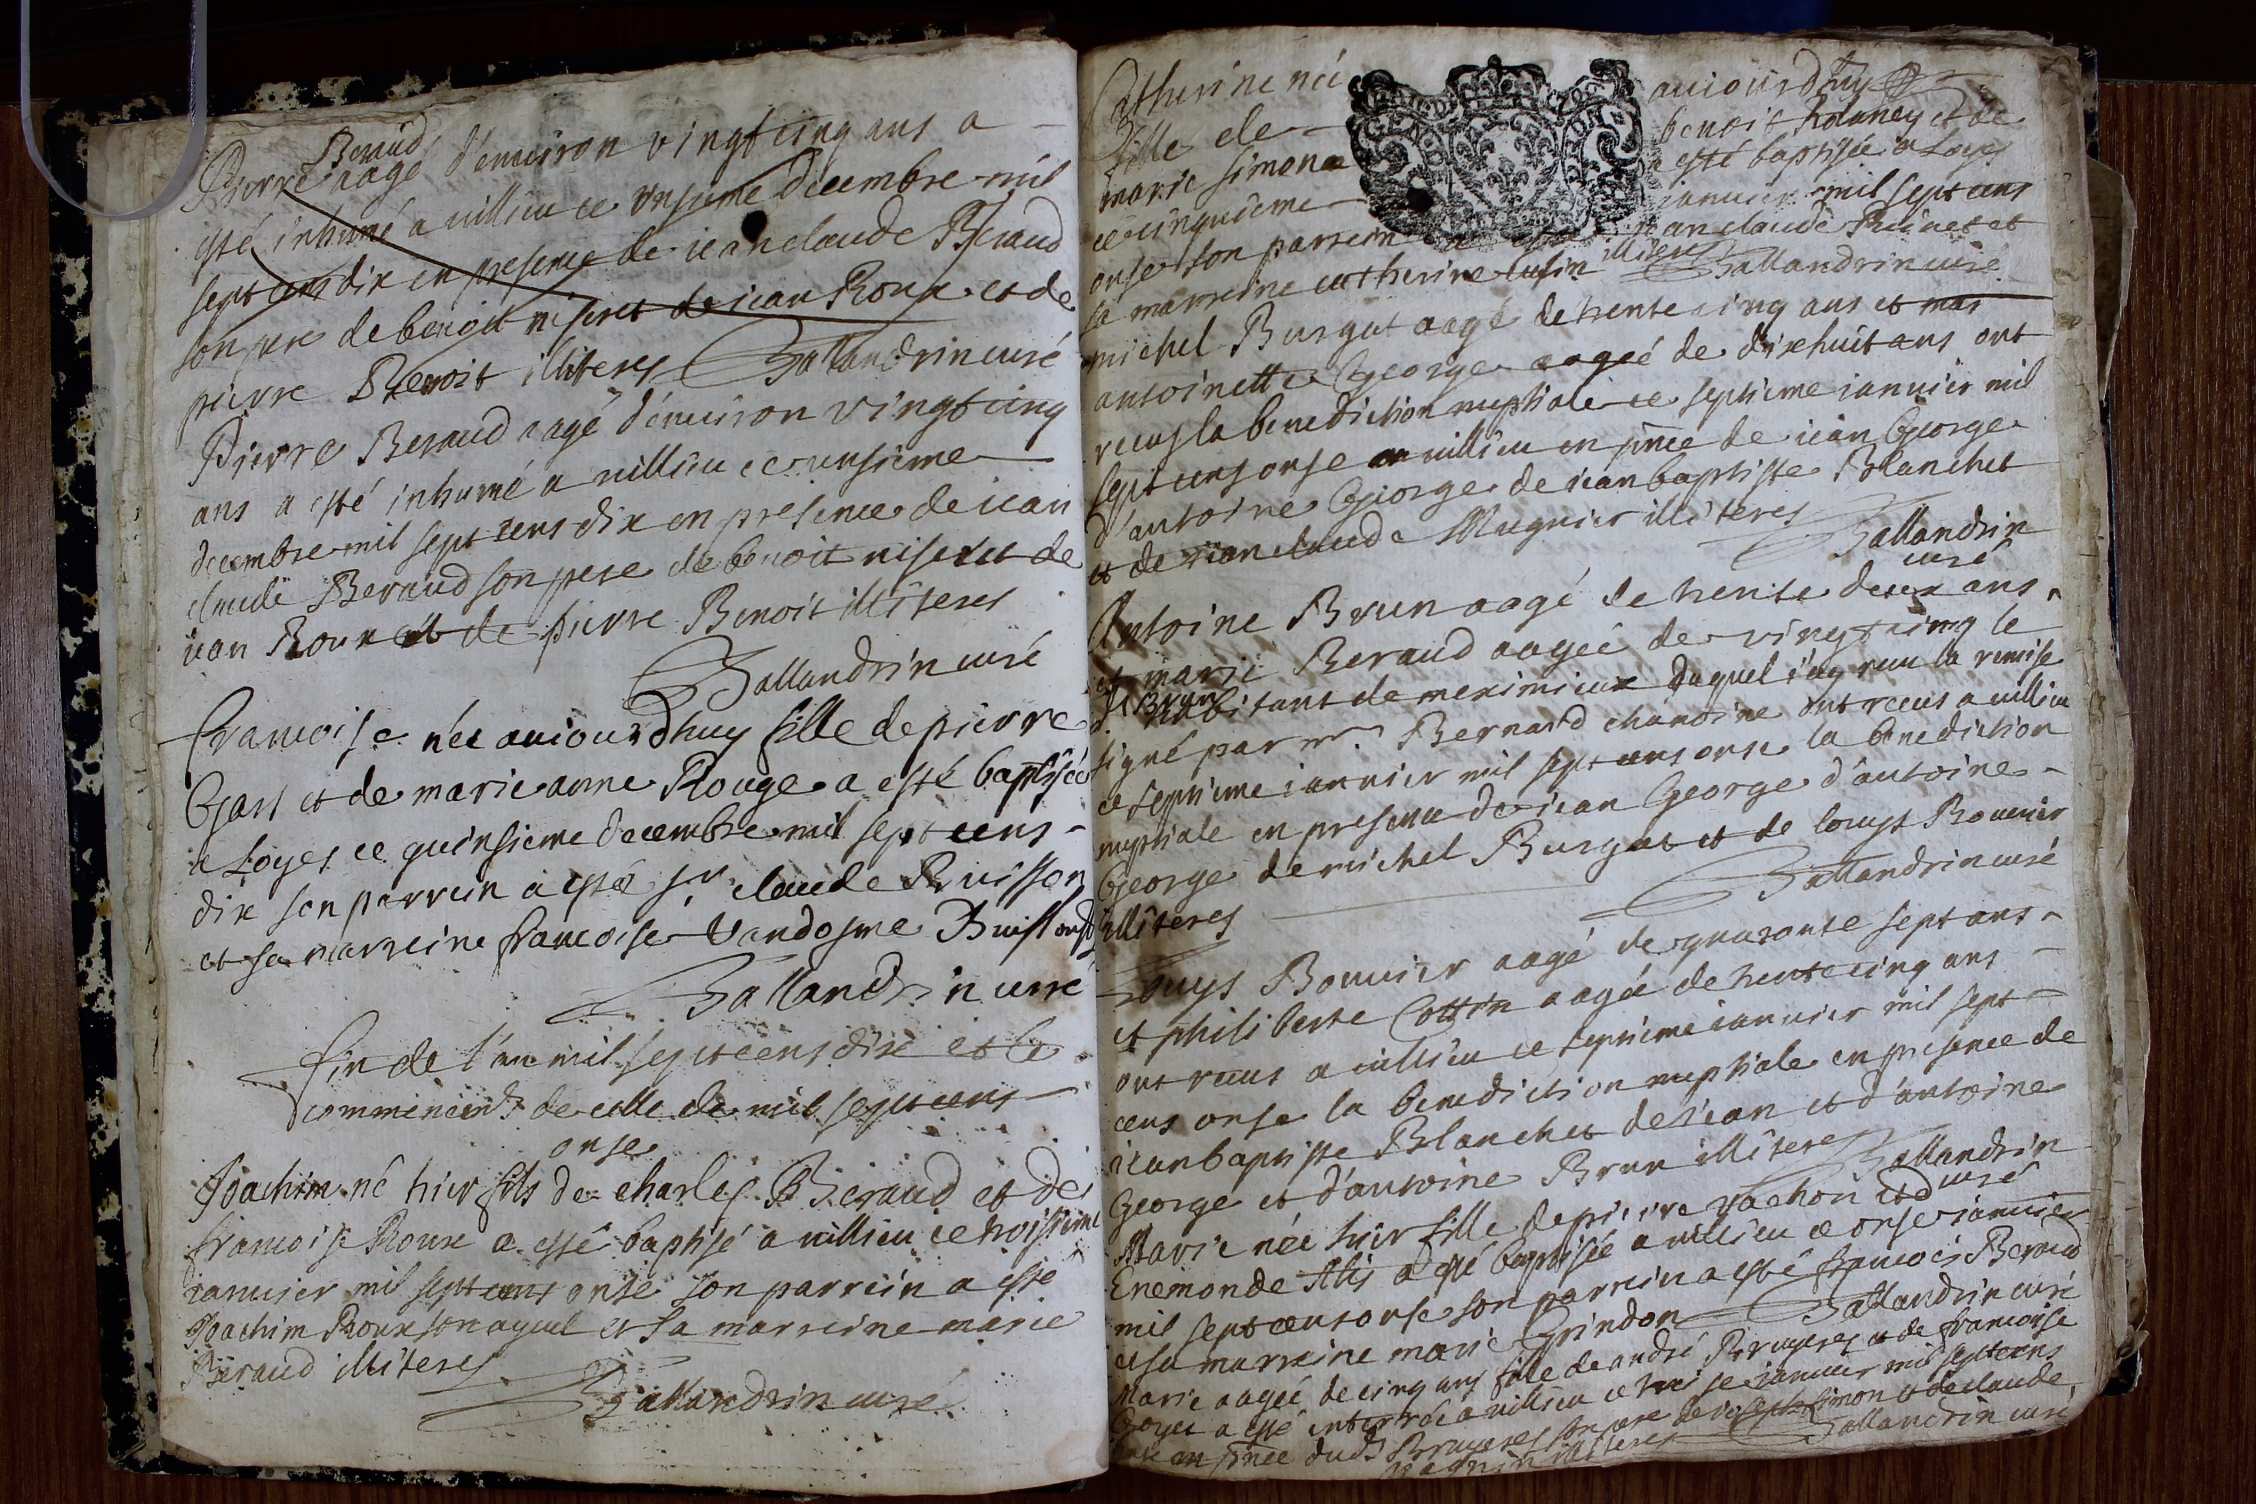 Beraud
Pierre aagé d'enuiron vingt cinq ans a
esté inhumé a uillieu ce unsieme decembre mil
sept cens dix en presence de iean claude Beraud
son pere de benoit niseret de iean Roux et de
pierre Benoit illiteres Ballandrin curé
Pierre Beraud aagé d'enuiron vingt cinq
ans a esté inhumé a uillieu ce unsieme
decembre mil sept cens dix en presence de iean
claude Beraud son pere de benoit niseret de
iean Roux et de pierre Benoit illiteres
Ballandrin curé
francoise née auiourdhuy fille de pierre
Gart et de marie anne Rouge a esté baptisée
a Loyes ce quinsieme decembre mil sept cens
dix son parrein a esté sr claude Buisson
et sa marreine francoise Vandosme Buisson
Ballandrin curé
fin de l'an mil sept cens dix et le
commencemt de celle de mil sept cens
onse
Joachim né hier fils de charles Beraud et de
francoise Roux a esté baptisé a uillieu ce troisieme
ianuier mil sept cens onse son parrein a esté
Joachim Roux son ayeul et sa marreine marie
Beraud illiteres
Ballandrin curé
Catherine née auiourdhuy
fille de benoit et de
marie simone a esté baptisée a Loyes
ce cinquieme ianuier mil sept cens
onse son parrein a esté iean claude et
sa marreine catherine cusin illiteres Ballandrin curé
michel Burgat aagé de trente cinq ans et
antoinette George aagée de dixhuit ans ont
receus la benediction nuptiale ce septieme ianuier mil
sept cens onse a uillieu en pnce de iean George
d'antoine George de iean baptiste Blanchet
et de iean claude Mugnier illiteres
Ballandrin
curé
Antoine Brun aagé de trente deux ans
et marie Beraud aagée de vingt cinq le
d. Brun habitant de meximieux duquel i'ay receu la remise
signé par mr. Bernard chanoine ont receus a uillieu
ce septieme ianuier mil sept cens onse la benediction
nuptiale en presence de iean George d'antoine
George de michel Burgat et de louys Bouuier
illiteres Ballandrin curé
Louys Bouuier aagé de quarante sept ans
et philiberte Cottin aagée de trente cinq ans
ont receus a uillieu ce septieme ianuier mil sept
cens onse la benediction nuptiale en presence de
iean baptiste Blanchet de iean et d'antoine
George et d'antoine Brun illiteres Ballandrin
curé
Marie née hier fille de pierre vachon et d
Enemonde Alis a esté baptisée a uillieu ce onse ianuier
mil sept cens onse son parrein a esté francois Beraud
et sa marreine marie Grindon Ballandrin curé
Marie aagée de cinq ans fille de andré Bruyeres et de francoise
Goyet a esté interrée a uillieu ce treise ianuier mil sept cens
onse en pnce dud. Bruyeres son pere de ioseph simon et de claude
illiteres Ballandrin curé